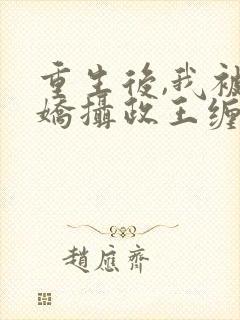 重生後,我被
嬌攝政王缠
趙應齊